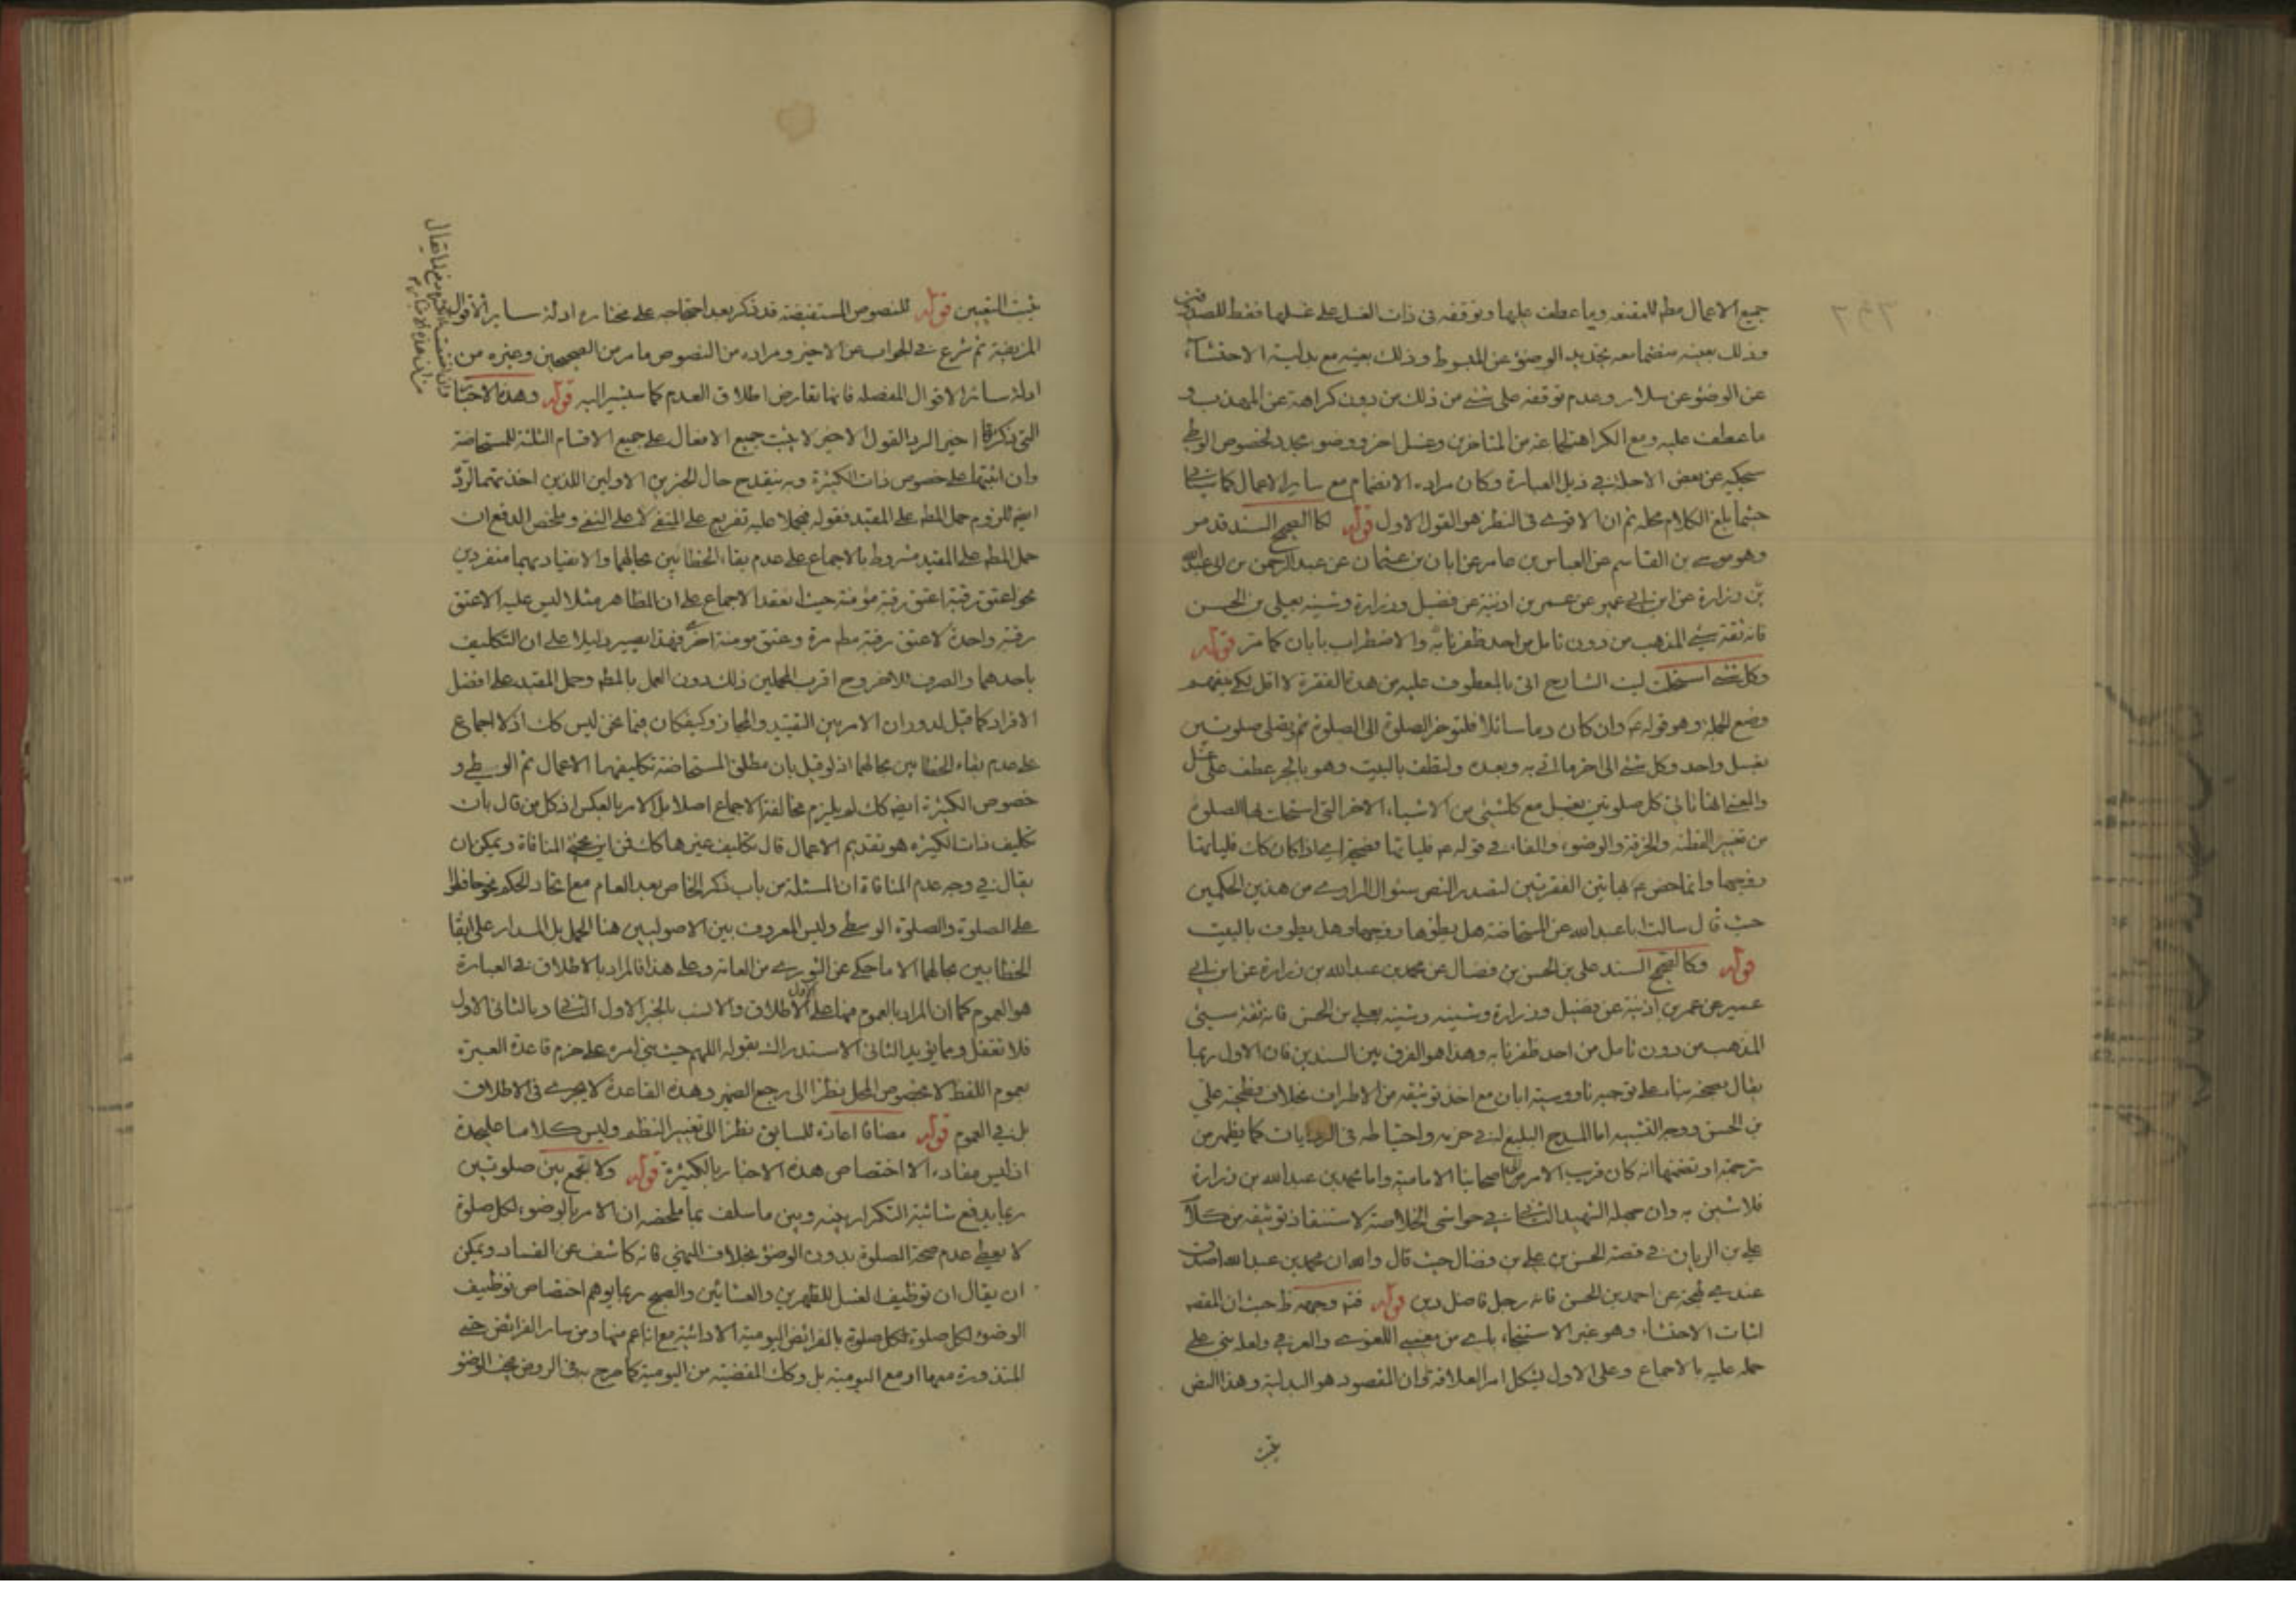 جميع الاعمال مطم للمقنعه وما عطف عليها وتوقفه فى ذات الغسل على غسلها فقط للصدوقين
وذلك بعينه منضما معه تجديد الوضوء عن المبسوط وذلك بعينه مع بدلية الاحتشاء
عن الوضوء عن سلار وعدم توقفه على شئ من ذلك من دون كراهة عن المهذب و
ما عطف عليه ومع الكراهة لجماعة من المتاخرين وغسل اخر ووضوء مجدد لخصوص الوطى
سيحكيه عن بعض الاجلة فى ذيل العبارة وكان مراده الانضمام مع ساير الاعمال كما سياتى
حيثما بلغ الكلام محله ثم ان الاقوى فى النظر هو القول الاول قوله كالصحيح السند قد مر
وهو موسى بن القاسم عن العباس بن عامر عن ابان بن عثمان عن عبد الرحمن بن ابى عبد الله
بن زرارة عن ابن ابى عمير عن عمر بن اذينة عن فضيل وزرارة وشبه بعلى بن الحسن
فانه ثقة سئ المذهب من دون تامل من احد ظفرنا به والاضطراب بابان كما مر قوله
وكل شئ استحلت ليت الشارح اتى بالمعطوف عليه من هذه الفقرة لا اقل لكى يتفهم
وضع الجملة وهو قوله ع وان كان دما سائلا فلتؤخر الصلوة الى الصلوة ثم تصلى صلوتين
بغسل واحد وكل شئ الى اخر ما اتى به وبعده ولتطف بالبيت وهو بالجر عطف على غسل
والمعنى انها تاتى كل صلوتين بغسل مع كل شئ من الاشياء الاخر التى استحلت بها الصلوة
من تغيير القطنة والخرقة والوضوء والفاء فى قوله ع فلياتها فصيحة اى اذا كان كك فلياتها
زوجها وانما خص ع بهاتين الفقرتين لتصدر النص سئوال الراوى من هذين الحكمين
حيث قال سالت ابا عبد الله عن المستحاضة هل يطؤها زوجها وهل يطوف بالبيت
قوله وكالصحيح السند على بن الحسن بن فضال عن محمد بن عبد الله بن زرارة عن ابن ابى
عمير عن عمر بن اذينة عن فضيل وزرارة وشبه بعلى بن الحسن فانه ثقة سيئ
المذهب من دون تامل من احد ظفرنا به وهذا هو الفرق بين السندين فان الاول ربما
يقال بصحته بناء على توجيه ناووسية ابان مع اخذ توثيقه من الاطراف بخلاف فطحية على
بن الحسن ووجه التشبيه اما المدح البليغ فى حزمه واحتياطه فى الروايات كما يظهر من
ترجمته او تضمنها انه كان قريب الامر من اصحابنا الامامية واما محمد بن عبد الله بن زرارة
فلا شين به وان جهله الشهيد الثانى فى حواشى الخلاصة لاستنفاذ توثيقه من كلام
على بن الريان فى قصة الحسن بن على بن فضال حيث قال والله ان محمد بن عبد الله اصدق
عندى لهجة من احمد بن الحسن فانه رجل فاضل دين قوله فتم وجهه ظ حيث ان المقصود
اثبات الاحتشاء وهو غير الاستثفار باى من معنييه اللغوى والعرفى ولعله بنى على
حمله عليه بالاجماع وعلى الاول يشكل امر العلاقة وان المقصود هو البدلية وهذا النص
يثبت
يثبت التعيين قوله للنصوص المستفيضة قد ذكر بعد احتجاجه على مختاره ادلة ساير الاقوال
المزيفة ثم شرع فى الجواب عن الاخير ومراده من النصوص ما مر من الصحيحين وغيره من
ادلة سائر الاقوال المفصله فانها تعارض اطلاق العدم كما سيشير اليه قوله وهذه الاخبار
التى ذكرها اخير الرد القول الاخير لا يثبت جميع الافعال على جميع الاقسام الثلثة للمستحاضة
وان اثبتها على خصوص ذات الكثيرة وبه ينقدح حال الخبرين الاولين اللذين اخذ تتمة الرد
ايضا للزوم حمل المطم على المقيد فقوله فيحملا عليه تفريع على المنفى لا على النفى وملخص الدفع ان
حمل المطم على المقيد مشروط بالاجماع على عدم بقاء الخطابين بحالهما والانقياد بهما منفردين
نحو اعتق رقبة اعتق رقبة مؤمنة حيث انعقد الاجماع على ان المظاهر مثلا ليس عليه الا عتق
رقبة واحدة لا عتق رقبة مطم مرة وعتق مومنة اخرى فهذا يصير دليلا على ان التكليف
باحدهما والصرف للاخر وح اقرب المحملين ذلك دون العمل بالمطم وحمل المقيد على افضل
الافراد كما قيل لدوران الامر بين التقييد والمجاز وكيف كان فيما نحن ليس كك اذ لا اجماع
على عدم بقاء الخطابين بحالهما اذ لو قيل بان مطلق المستحاضة تكليفها الاعمال ثم الوسطى و
خصوص الكثيرة ايضا كك لم يلزم مخالفة الاجماع اصلا بل الامر بالعكس اذ كل من قال بان
تكليف ذات الكثيرة هو تقديم الاعمال قال تكليف غيرها كك فمن اين يجئ المنافاة ويمكن ان
يقال فى وجه عدم المنافاة ان المسئلة من باب ذكر الخاص بعد العام مع اتحاد الحكم نحو حافظوا
على الصلوة والصلوة الوسطى وليس المعروف بين الاصوليين هنا الحمل بل المدار على ابقاء
الخطابين بحالهما الا ما حكى عن الثورى من العامة وعلى هذا فالمراد بالاطلاق فى العبارة
هو العموم كما ان المراد بالعموم فيها على الاول الاطلاق والانسب بالخبر الاول الثانى وبالثانى الاول
فلا تغفل ومما يؤيد الثانى الاستدراك بقوله اللهم حيث بنى امره على خرم قاعدة العبرة
بعموم اللفظ لا بخصوص المحل نظرا الى رجع الضمير وهذه القاعدة لا يجرى فى الاطلاق
بل فى العموم قوله مضافا اعادة للسابق نظرا الى تغيير النظم وليس كلاما عليحدة
اذ ليس مفاده الا اختصاص هذه الاخبار بالكثيرة قوله ولا تجمع بين صلوتين
ربما يدفع شائبة التكرار بينه وبين ما سلف بما ملخصه ان الامر بالوضوء لكل صلوة
لا يعطى عدم صحة الصلوة بدون الوضوء بخلاف النهى فانه كاشف عن الفساد ويمكن
ان يقال ان توظيف الغسل للظهرين والعشائين والصبح ربما يوهم اختصاص توظيف
الوضوء لكل صلوة لكل صلوة بالفرائض اليومية الادائية مع انا عم منها ومن ساير الفرائض حتى
المنذورة منها او مع اليومية بل وكك المقضية من اليومية كما صرح به فى الروض فيجب الوضوء